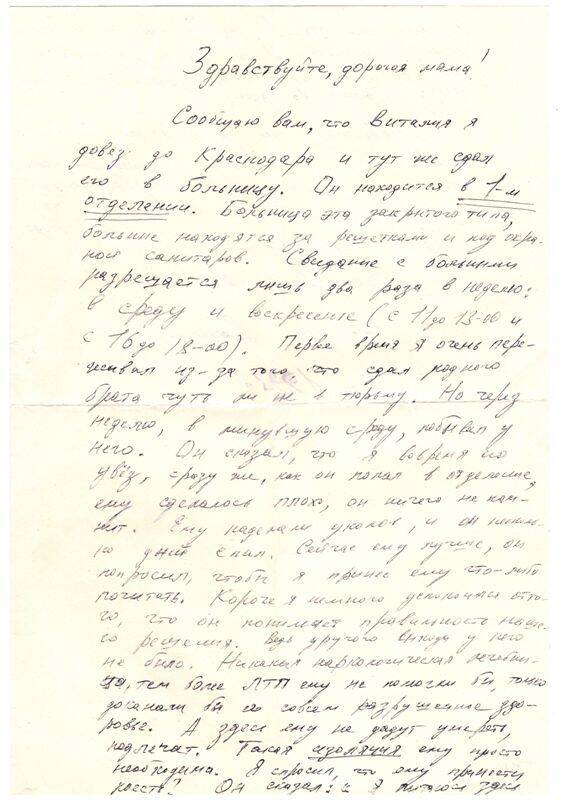 Здравствуйте, дорогая мама!
Сообщаю вам, что Виталия я
довёз до Краснодара и тут же сдал
его в больницу. Он находится в 1-м
отделении. Больница эта закрытого типа,
больные находятся за решетками и под охра-
ной санитаров. Свидание с больными
разрешается лишь два раза в неделю:
в среду и воскресенье (с 11 до 13-00 и
с 16 до 18-00). Первое время я очень пере-
живал из-за того что сдал родного
брата чуть ли не в тюрьму. Но через
неделю, в минувшую среду, побывал у
него. Он сказал, что я вовремя его
увёз, сразу же, как он попал в отделение,
ему сделалось плохо, он ничего не пом-
нит. Ему наделали уколов, и он несколь-
ко дней спал. Сейчас ему лучше, он
попросил, чтобы я принёс ему что-либо
почитать. Короче я немного успокоился отто-
го, что он понимает правильность наше-
го решения. Ведь другого выхода у него
не было. Никакая наркологическая лечебни-
ца, тем более ЛТП ему не помогли бы, только
доканали бы его совсем разрушенное здо-
ровье. А здесь ему не дадут умереть,
подлечат. Такая изоляция ему просто
необходима. Я спросил, что ему принести
поесть? Он сказал: "Я питаюсь здесь